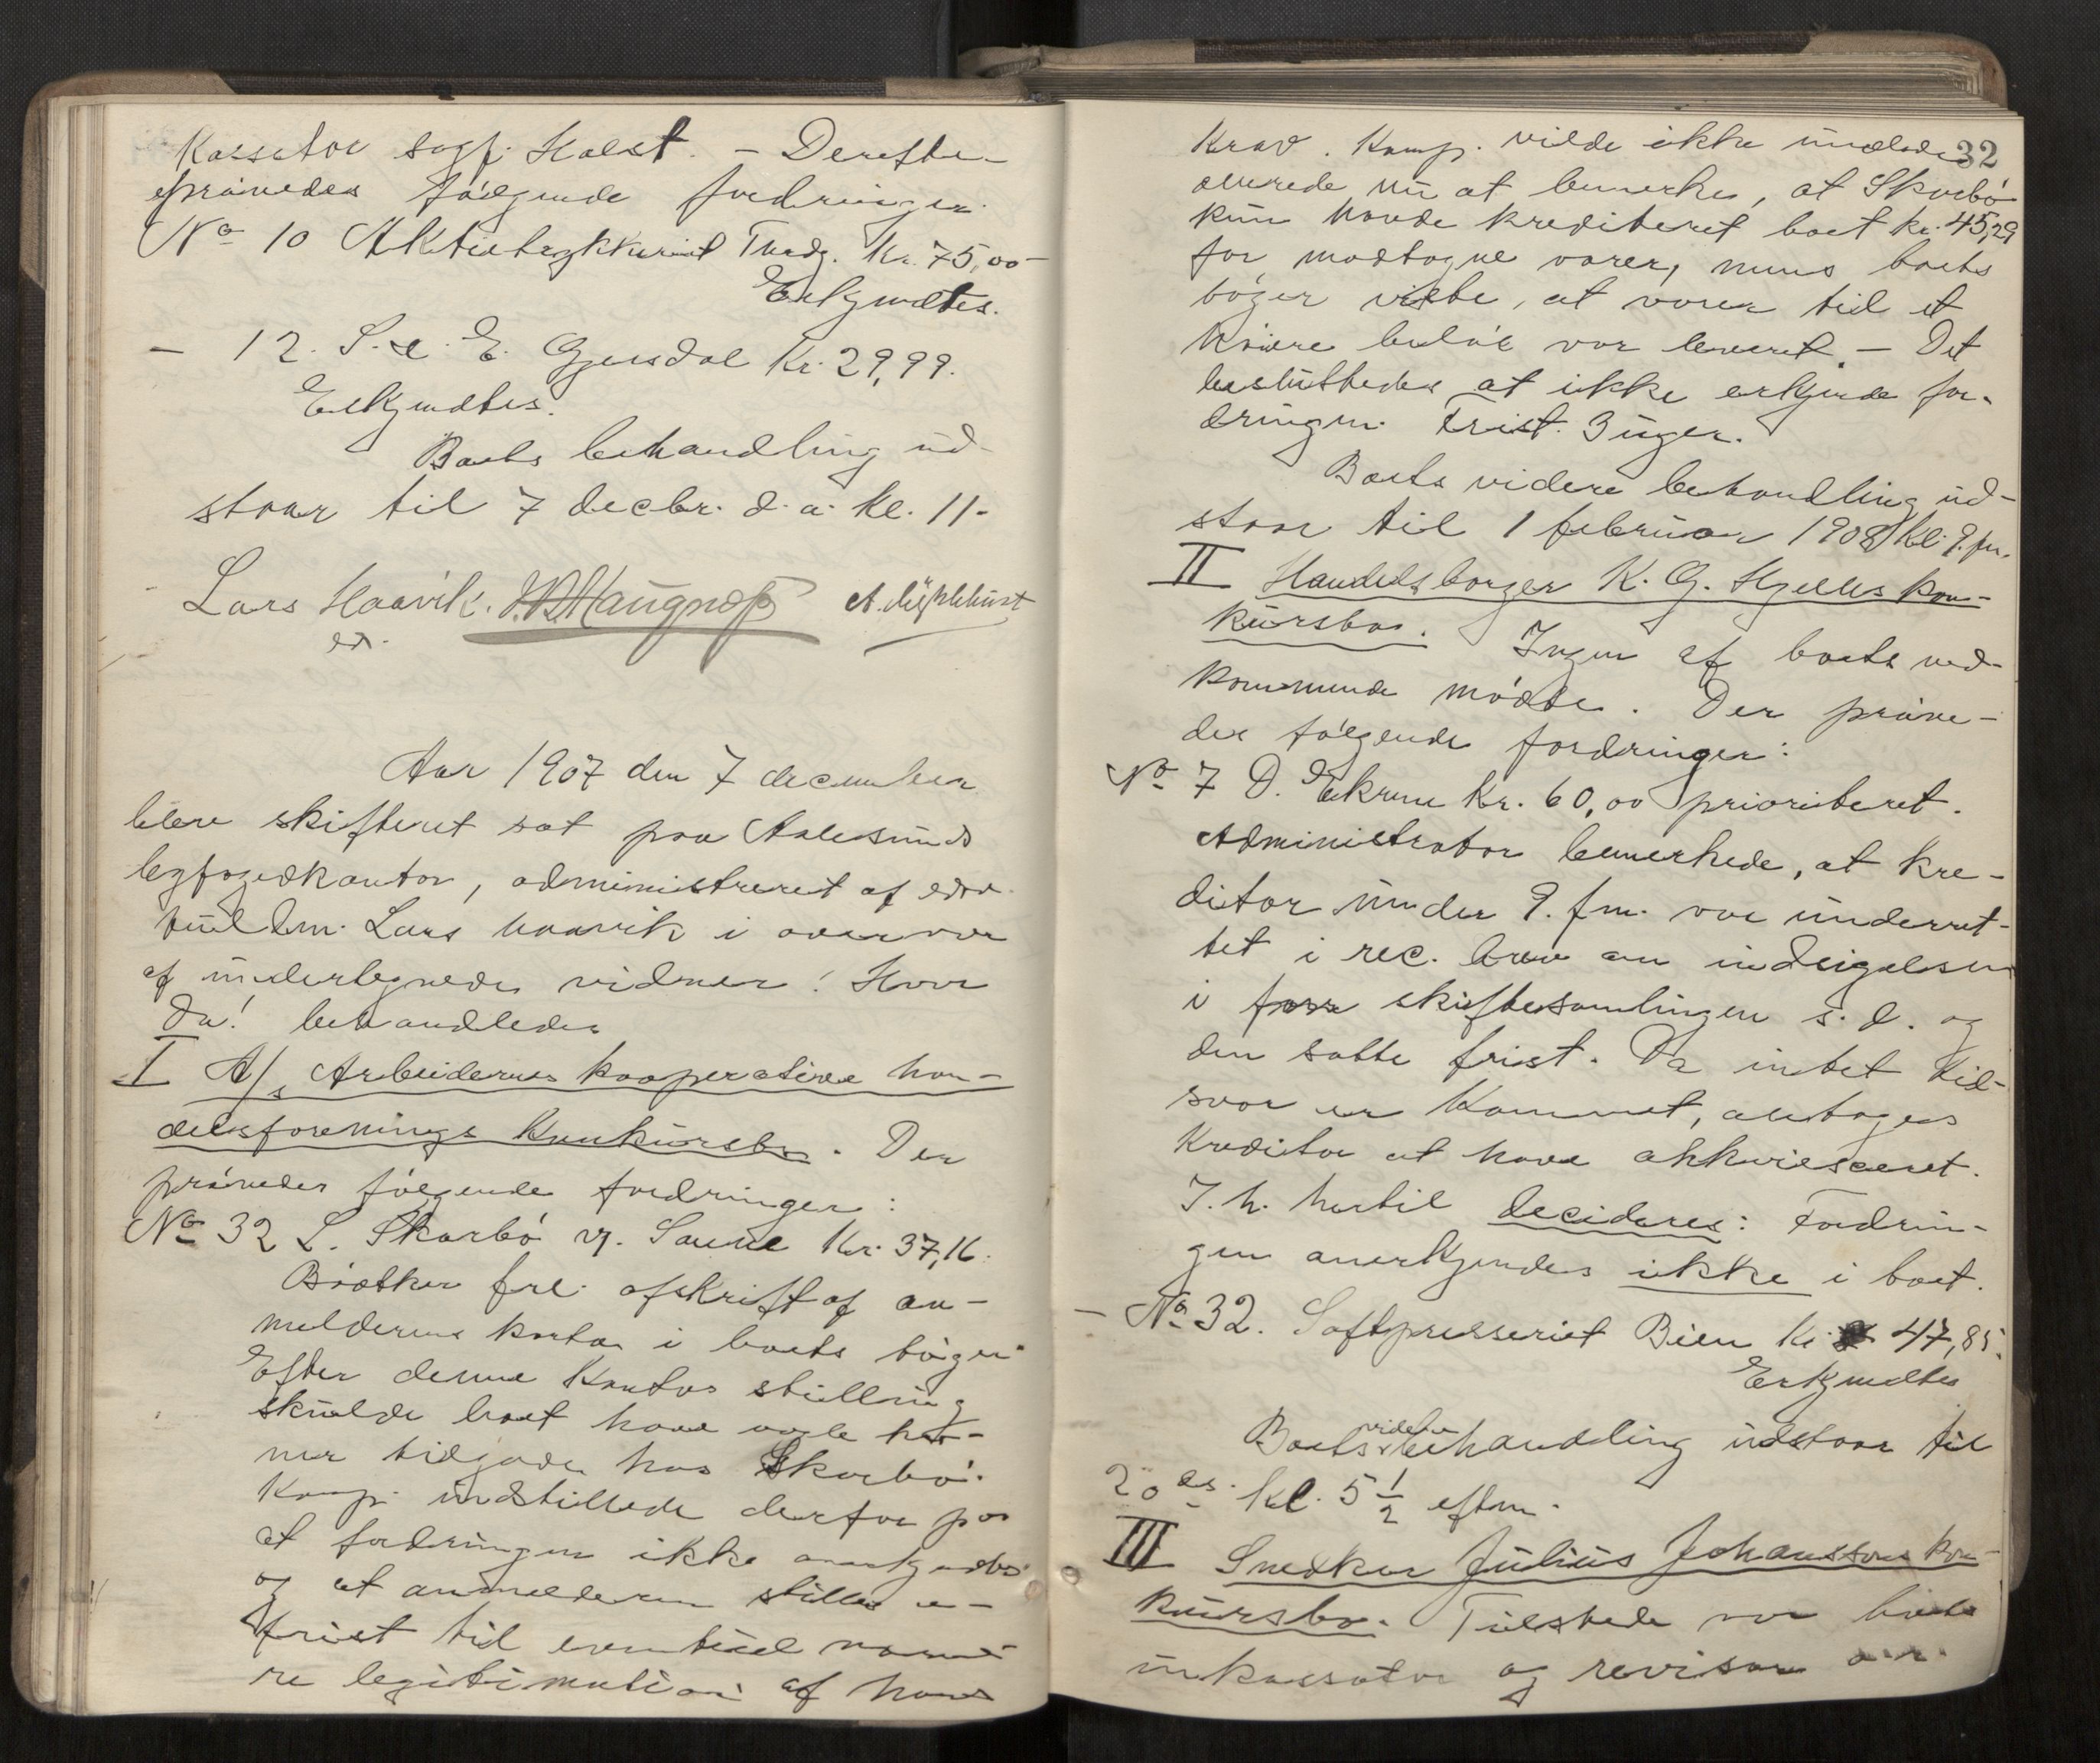 kassator sagf. Holst. – Derefter
prøvedes følgende fordringer
No 10 Aktietrykkeriet Trndj. Kr. 75,00
Erkjendtes.
– 12. S. & E. Gjersdal Kr. 29,99.
Erkjendtes.
Boets behandling ud-
staar til 7 decbr. d. a. kl. 11.
Lars Haavik.
ed.
Aar 1907 den 7 december
blev skifteret sat paa Aalesunds
byfogedkontor, administreret af edsv.
fuldm. Lars Haavik i overvær
af undertegnede vidner! Hvor
da! behandledes
I A/s Arbeidernes kooperative han-
delsforenings konkursbo. Der
prøvedes følgende fordringer:
No 32 L. Skarbø Kr. 37,16.
Bødtker frl. afskrift af an-
melderens konto i boets bøger.
Efter denne kontos stilling
skulde boet have
tilgode hos Skarbø.
Komp. indstillede derfor paa
at fordringen ikke anerkjendtes
og at anmelderen stilles en
frist til eventuel nærme-
re legitimation af hans
32
krav. Komp. vilde ikke undlade
allerede nu at bemerke, at Skarbø
kun havde krediteret boet kr. 45,29
for modtagne varer, mens boets
bøger viste, at varer til et
høiere beløb var leveret. – Det
besluttedes at ikke erkjende for-
dringen. Frist 3 uger.
Boets videre behandling ud-
staar til 1 februar 1908 kl. 9. fm.
II Handelsborger K. G. Hjelles kon-
kursbo. Ingen af boets ved-
kommende mødte. Der prøve-
des følgende fordringer:
No 7 D. Ekrem Kr. 60,00 prioriteret.
Administrator bemerkede, at kre-
ditor under 9. f.m. var underret-
tet i rec. brev om indsigelsen
i skiftesamlingen s. d. og
den satte frist. Da intet til-
svar er kommet, antages
kreditor at have akkviesceret.
I. h. hertil decideres: Fordrin-
gen anerkjendes ikke i boet.
– No 32. Saftpresseriet Bien Kr. 47,85.
Erkjendtes
Boets videre behandling udstaar til
20 ds. kl. 5 1/2 eftm.
III Snedker Julius Johanssons kon-
kursbo. Tilstede var boets
inkassator og revisor